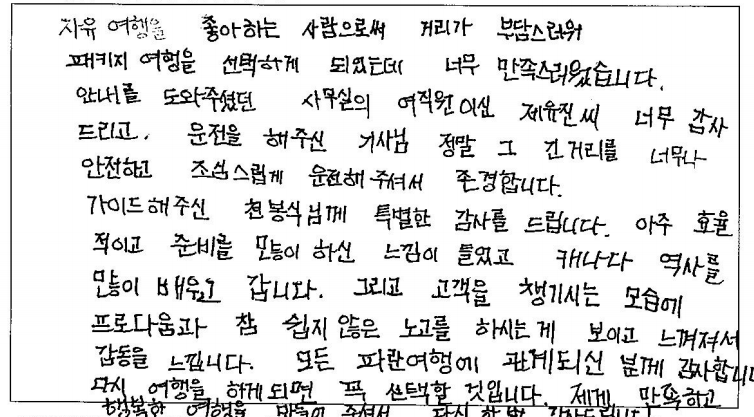 자유 여행을 좋아하는 사람으로써 거리가 부담스러워
패키지 여행을 선택하게 되었는데 너무 만족스러웠습니다.
안내를 도와주셨던 사무실의 여직원이신 제유진씨 너무 감사
드리고, 운전을 해주신 기사님 정말 그 긴거리를 너무나
안전하고 조심스럽게 운전해주셔서 존경합니다.
가이드해주신 천봉식님께 특별한 감사를 드립니다. 아주 효율
적이고 준비를 많이 하신 느낌이 들었고 캐나다 역사를
많이 배우고 갑니다. 그리고 고객을 챙기시는 모습에
프로다움과 참 쉽지 않은 노고를 하시는게 보이고 느껴져서
감동을 느낍니다. 모든 파란여행에 관계되신 분께 감사합니다
다시 여행을 하게되면 꼭 선택할 것입니다. 제게 만족하고
행복한 여행을 만들어 주셔서 다시 한번 감사드립니다